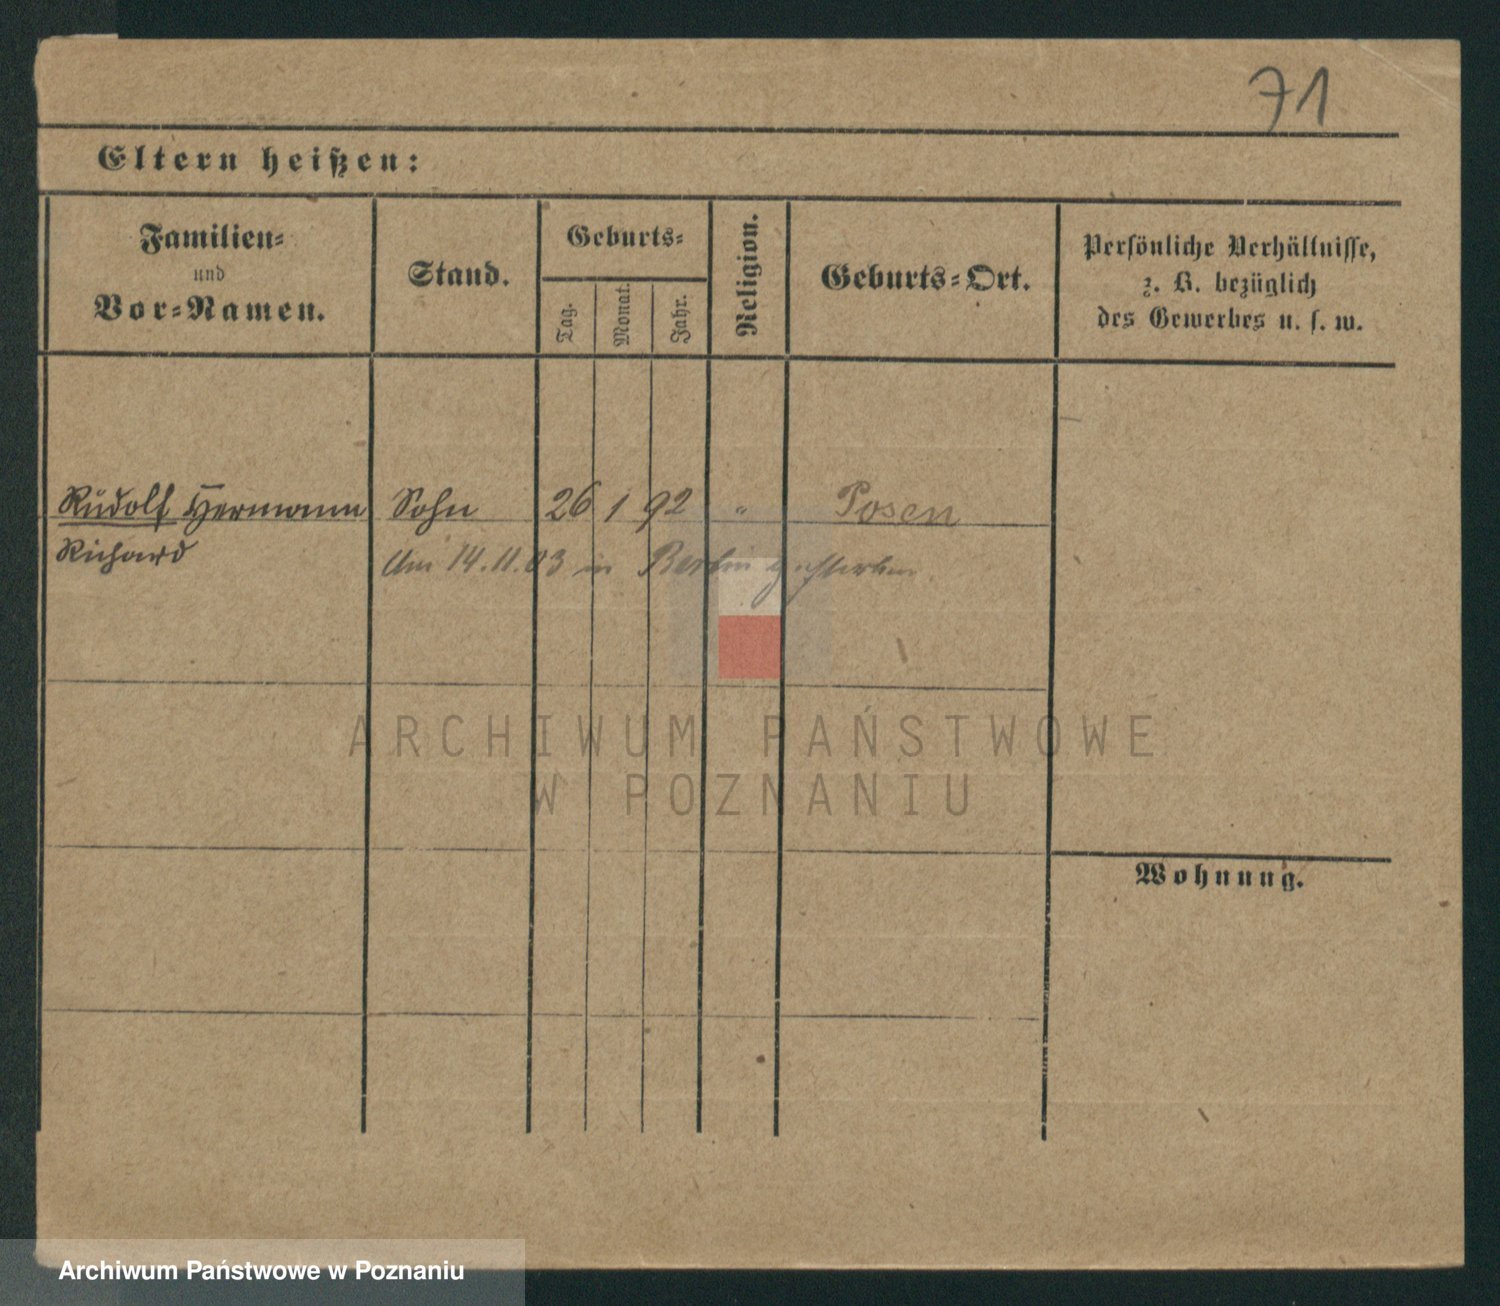 71
Eltern heißen:
Familien-
und
Vor-Namen.
Stand.
Geburts-
Tag.
Monat.
Jahr.
Religion.
Geburts-Ort.
Persönliche Verhältnisse,
z. B. bezüglich
des Gewerbes u. s. w.
Rudolf Hermann Sohn 26 1 92 " Posen
Richard
Am 14.11.03 in Berlin gestorben.
ARCHIWUM PAŃSTWOWE
W POZNANIU
Wohnung.
Archiwum Państwowe w Poznaniu